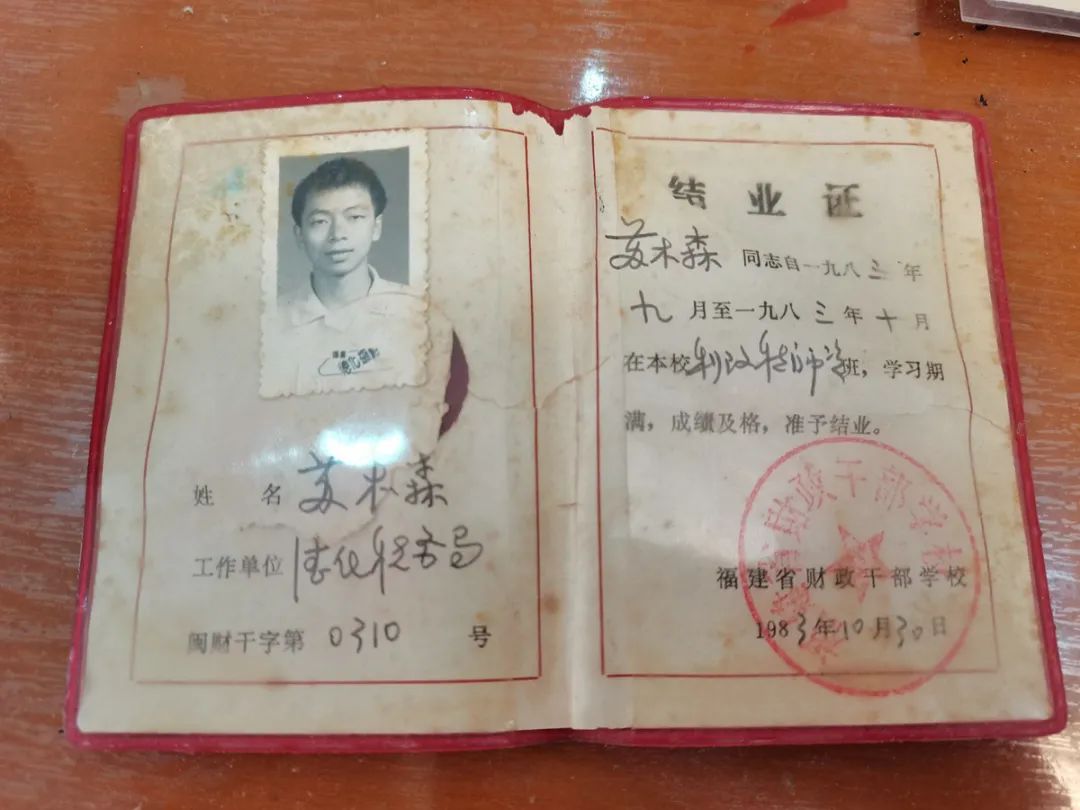 姓 名 苏木森
工作单位 德化税务局
闽财干字第 0310 号
结业证
苏木森 同志自一九八三年
九月至一九八三年十月
在本校利改税师资班，学习期
满，成绩及格，准予结业。
福建省财政干部学校
1983年10月30日
福建省财政干部学校